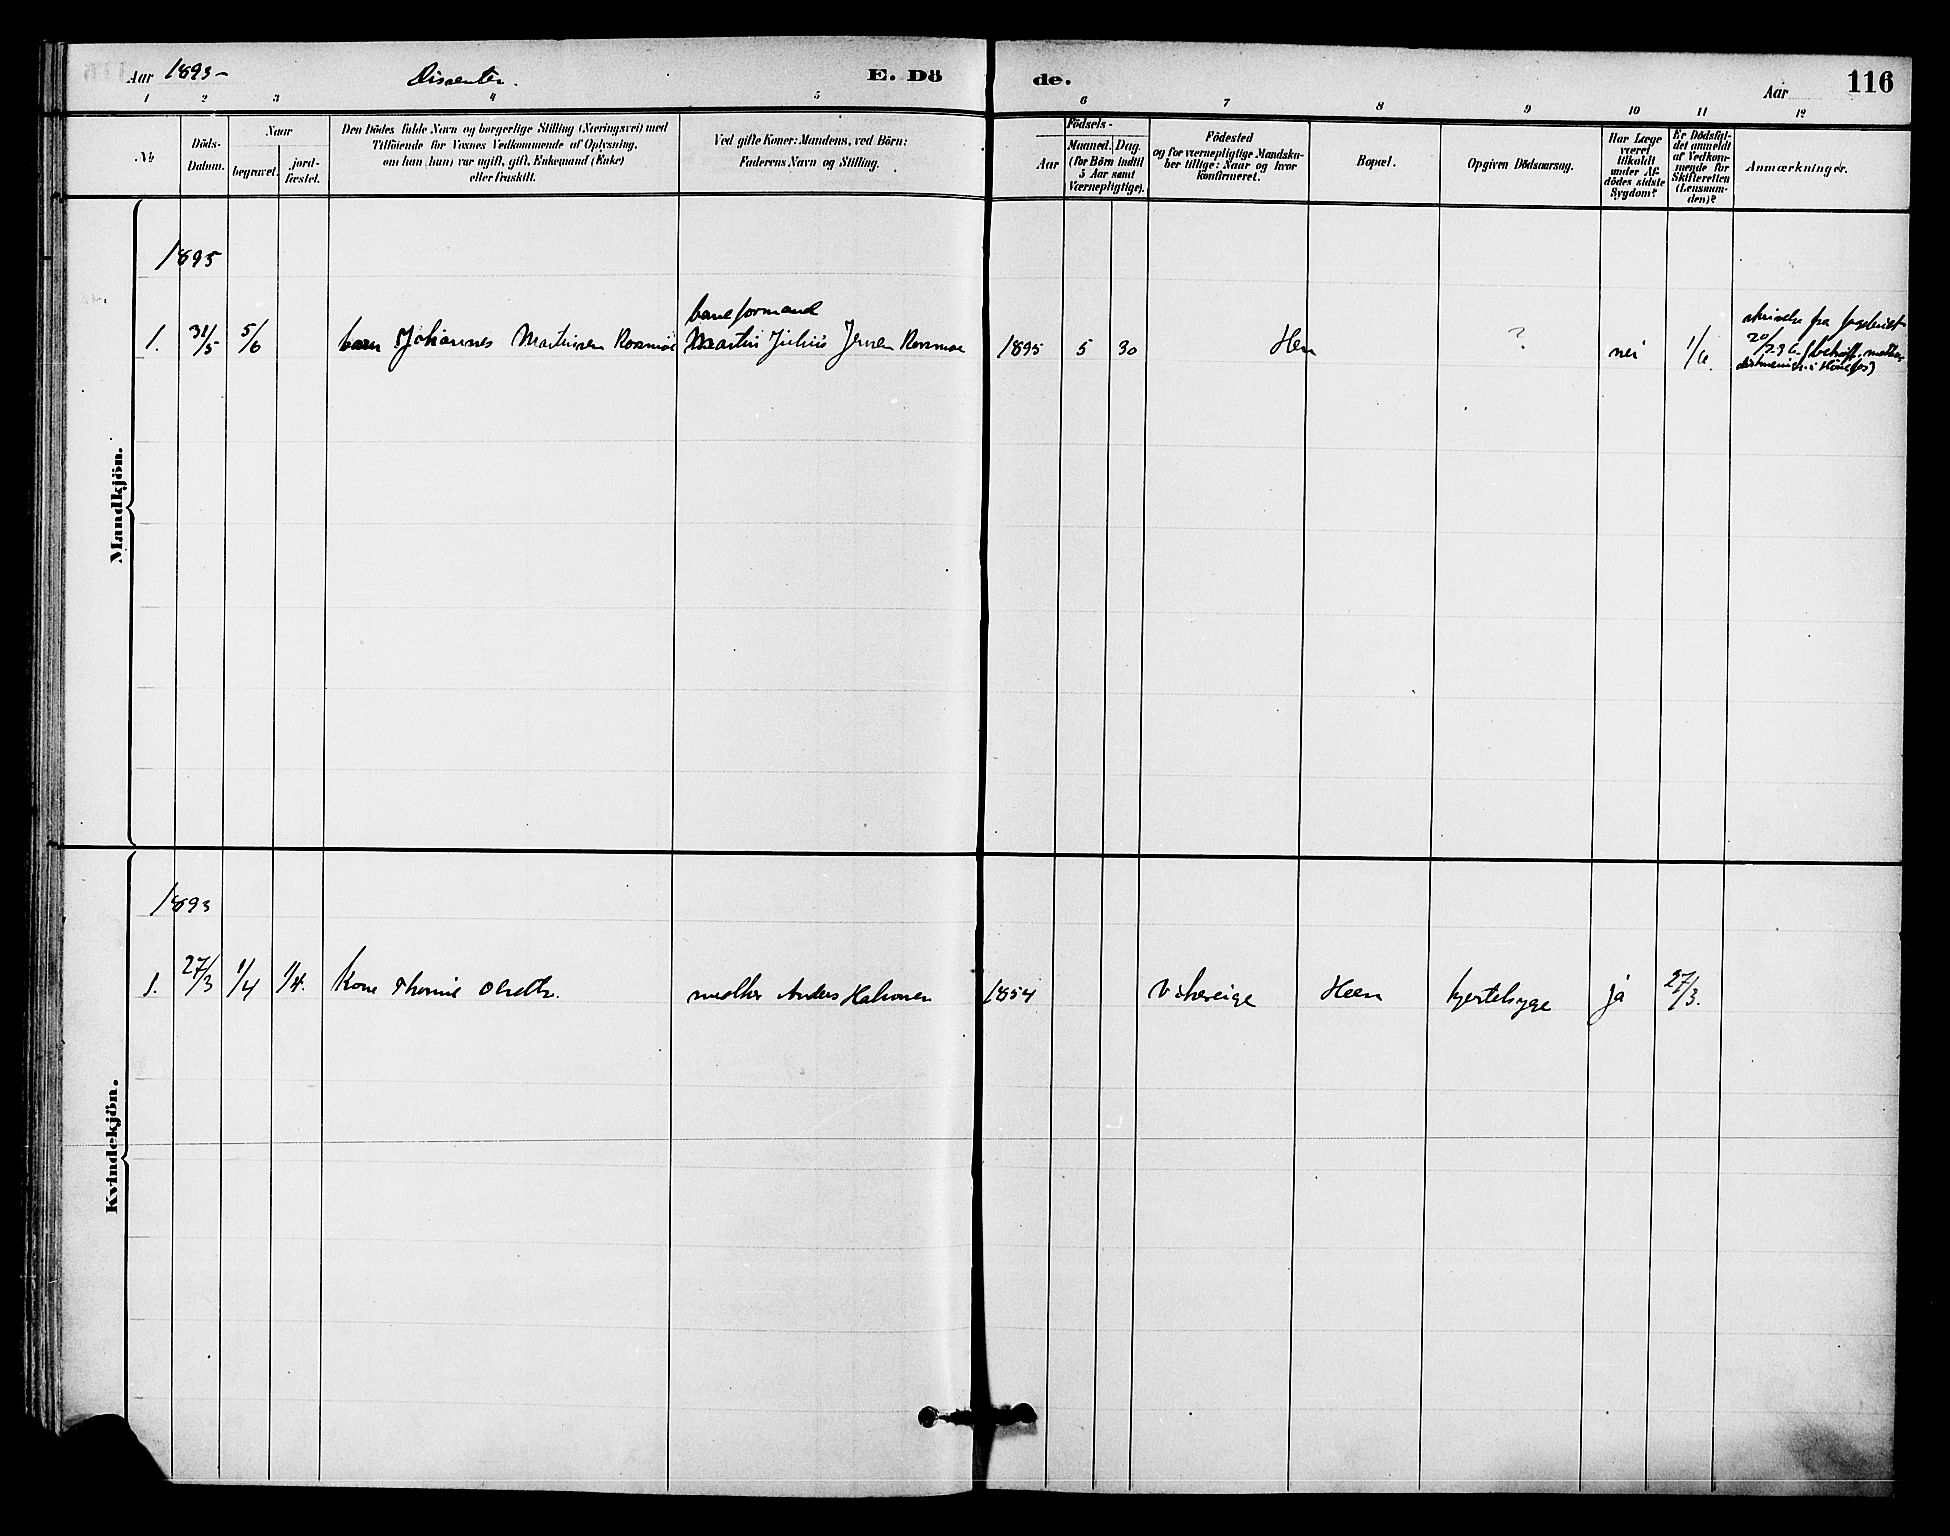 Aar 1893-
Dissenter.
E. Dö
de.
Aar
116
1 2 3 4 5 6 7 8 9 10 11 12
No
Döds-Datum.
Naar
begravet.
jord-fæstet.
Den Dödes fulde Navn og borgerlige Stilling (Næringsvei) med
Tilföiende for Voxnes Vedkommende af Oplysning,
om han (hun) var ugift, gift, Enkemand (Enke)
eller fraskilt.
Ved gifte Koner: Mandens, ved Börn:
Faderens Navn og Stilling.
Födsels-
Aar
Maaned. Dag.
(for Börn indtil
5 Aar samt
Værnepligtige).
Födested
og for værnepligtige Mandska-
ber tillige: Naar og hvor
konfirmeret.
Bopæl.
Opgiven Dödsaarsag.
Har Læge
været
tilkaldt
under Af-
dödes sidste
Sygdom?
Er Dödsfal-
det anmeldt
af Vedkom-
mende for
Skifteretten
(Lensman-
den)?
Anmærkninger.
Mandkjön.
1895
baneformand
1. 31/5 5/6 barn Johannes Martinsen Rosmoe Martin Julius Jensen Rosmoe 1895 5 30 Hen ? nei 1/6.
skrivelse fra
Kvindekjön.
1893
1. 27/3 1/4 1/4. Kone Olsdtr. Anders Halvorsen 1854 Heen hjertesyge ja 27/3.